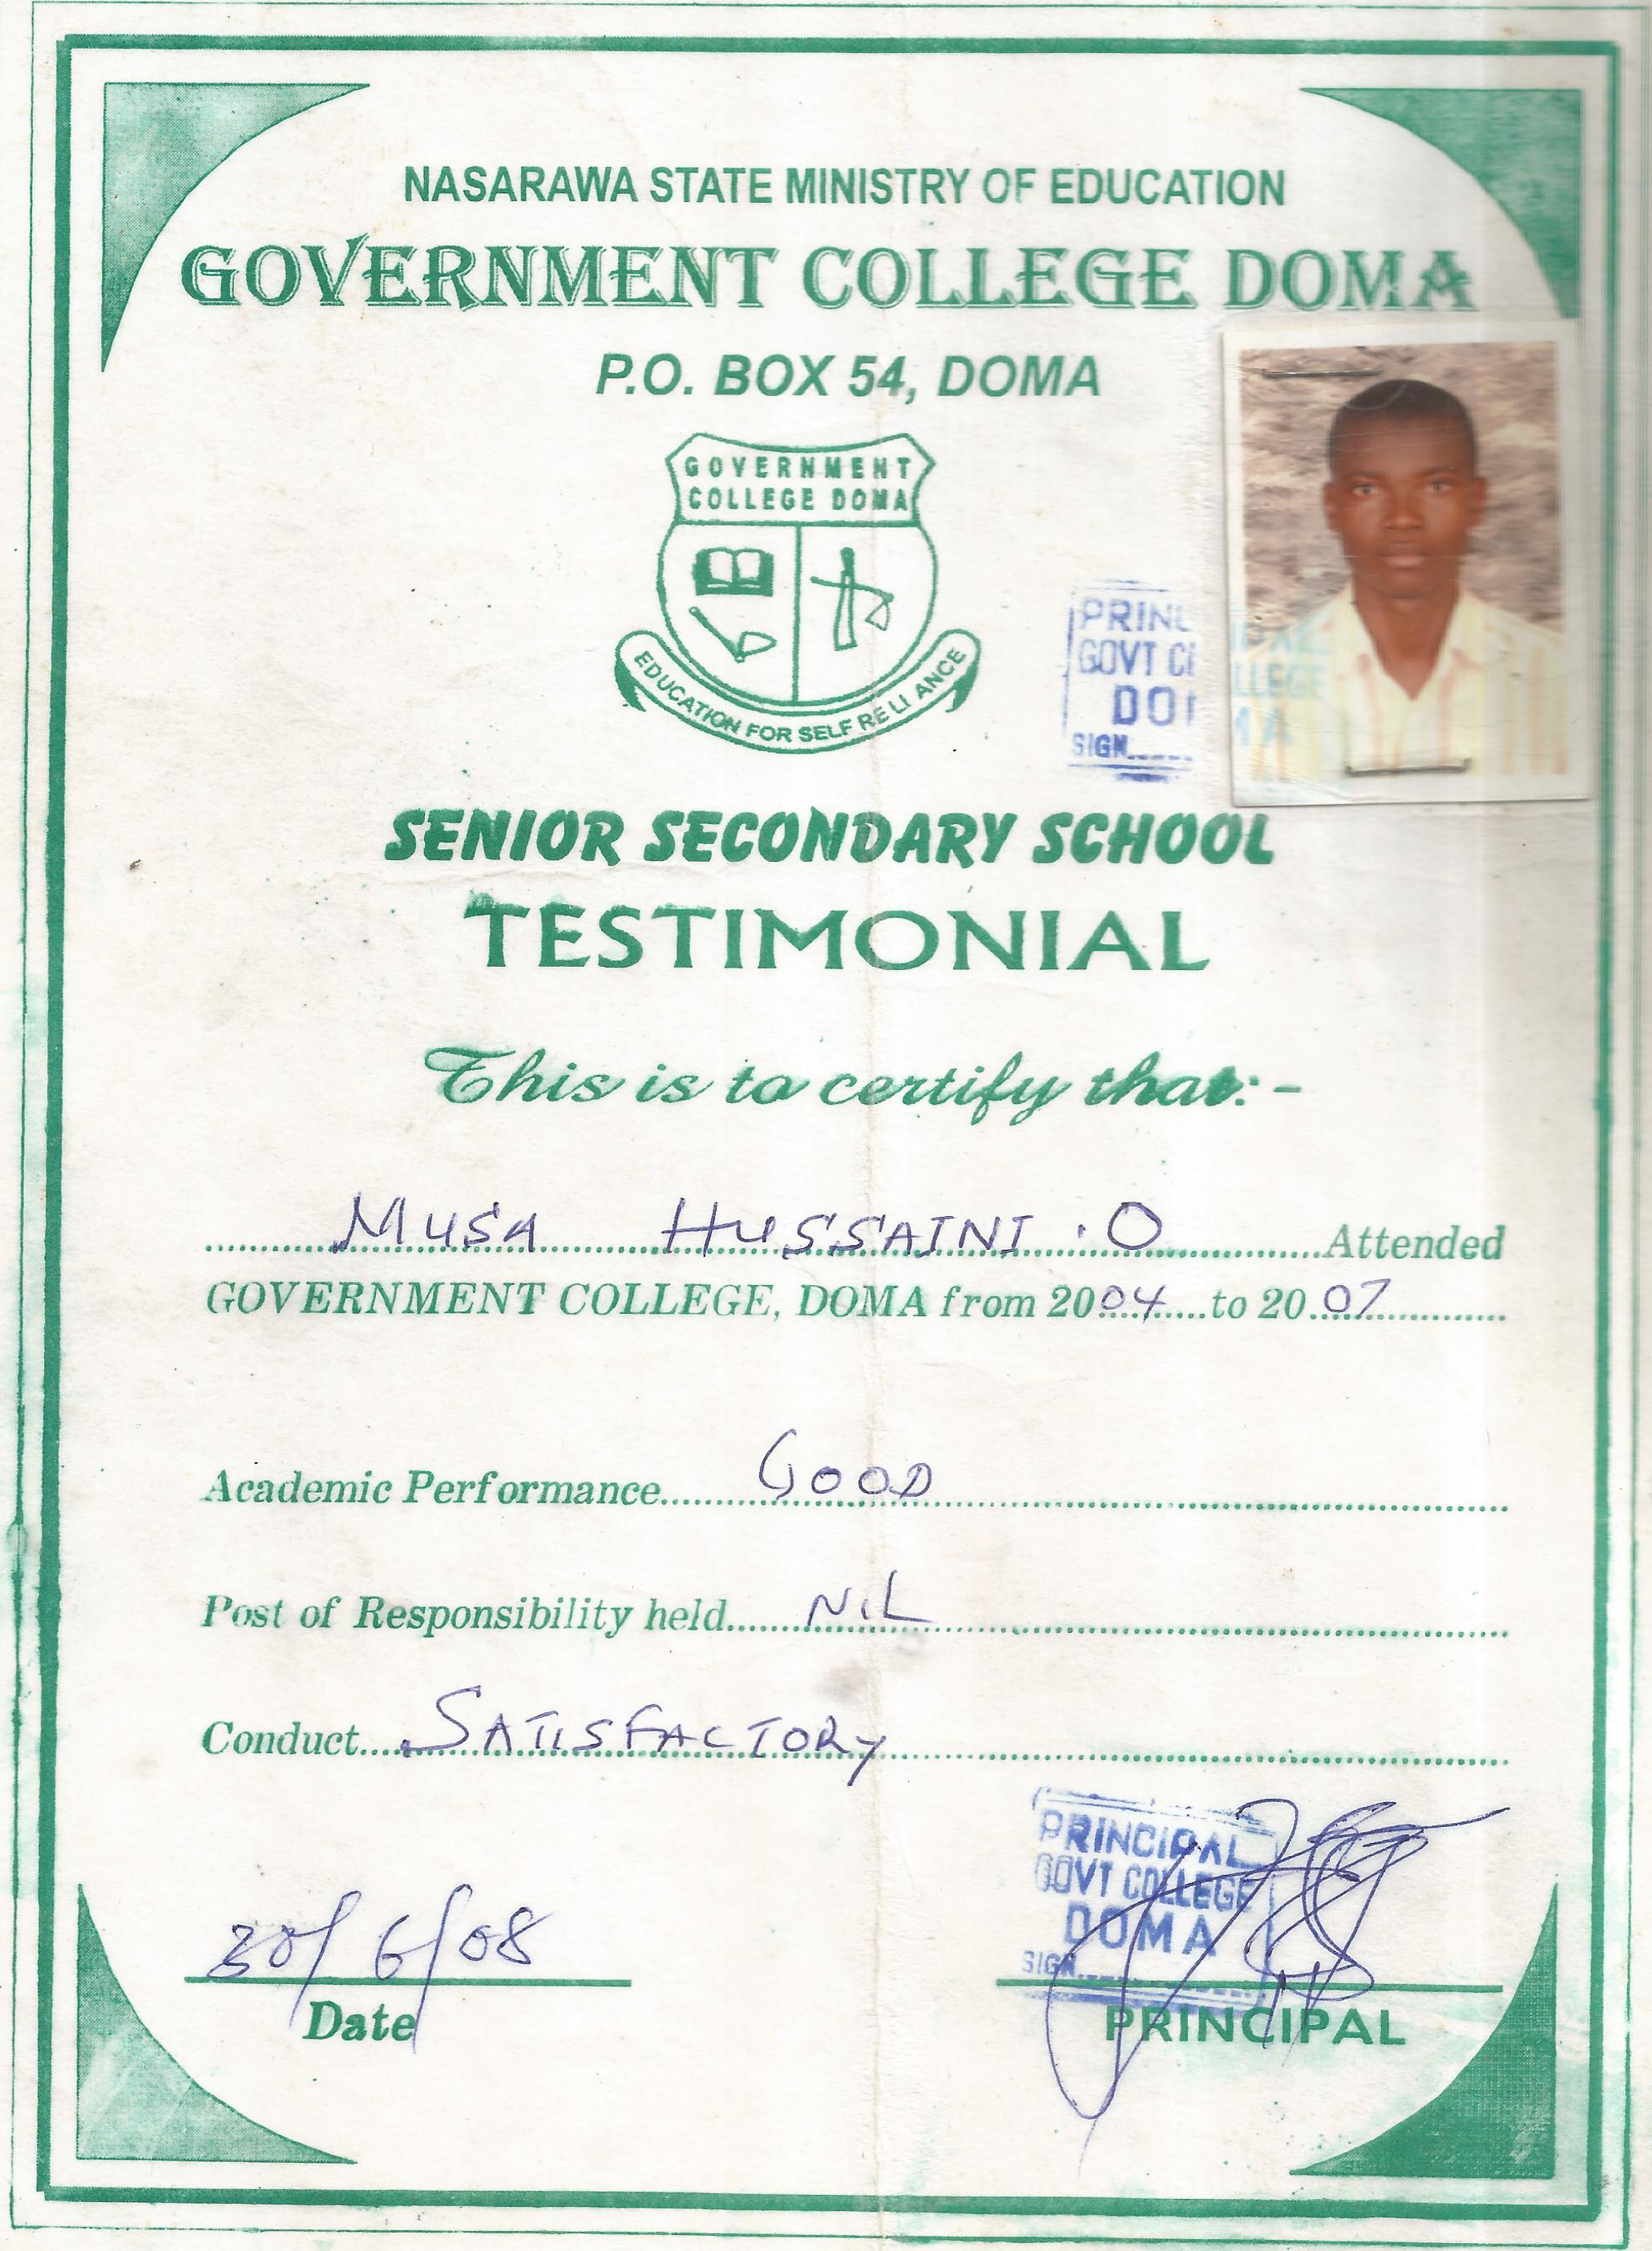 NASARAWA STATE MINISTRY OF EDUCATION
GOVERNMENT COLLEGE DOMA
P.O. BOX 54, DOMA
GOVERNMENT
COLLEGE DOMA
EDUCATION FOR SELF RELIANCE
PRINCIPAL
GOVT COLLEGE
DOMA
SIGN
SENIOR SECONDARY SCHOOL
TESTIMONIAL
This is to certify that:-
MUSA HUSSAINI .O Attended
GOVERNMENT COLLEGE, DOMA from 2004 to 2007
Academic Performance GOOD
Post of Responsibility held NIL
Conduct SATISFACTORY
PRINCIPAL
GOVT COLLEGE
DOMA
SIGN
30/6/08
Date
PRINCIPAL